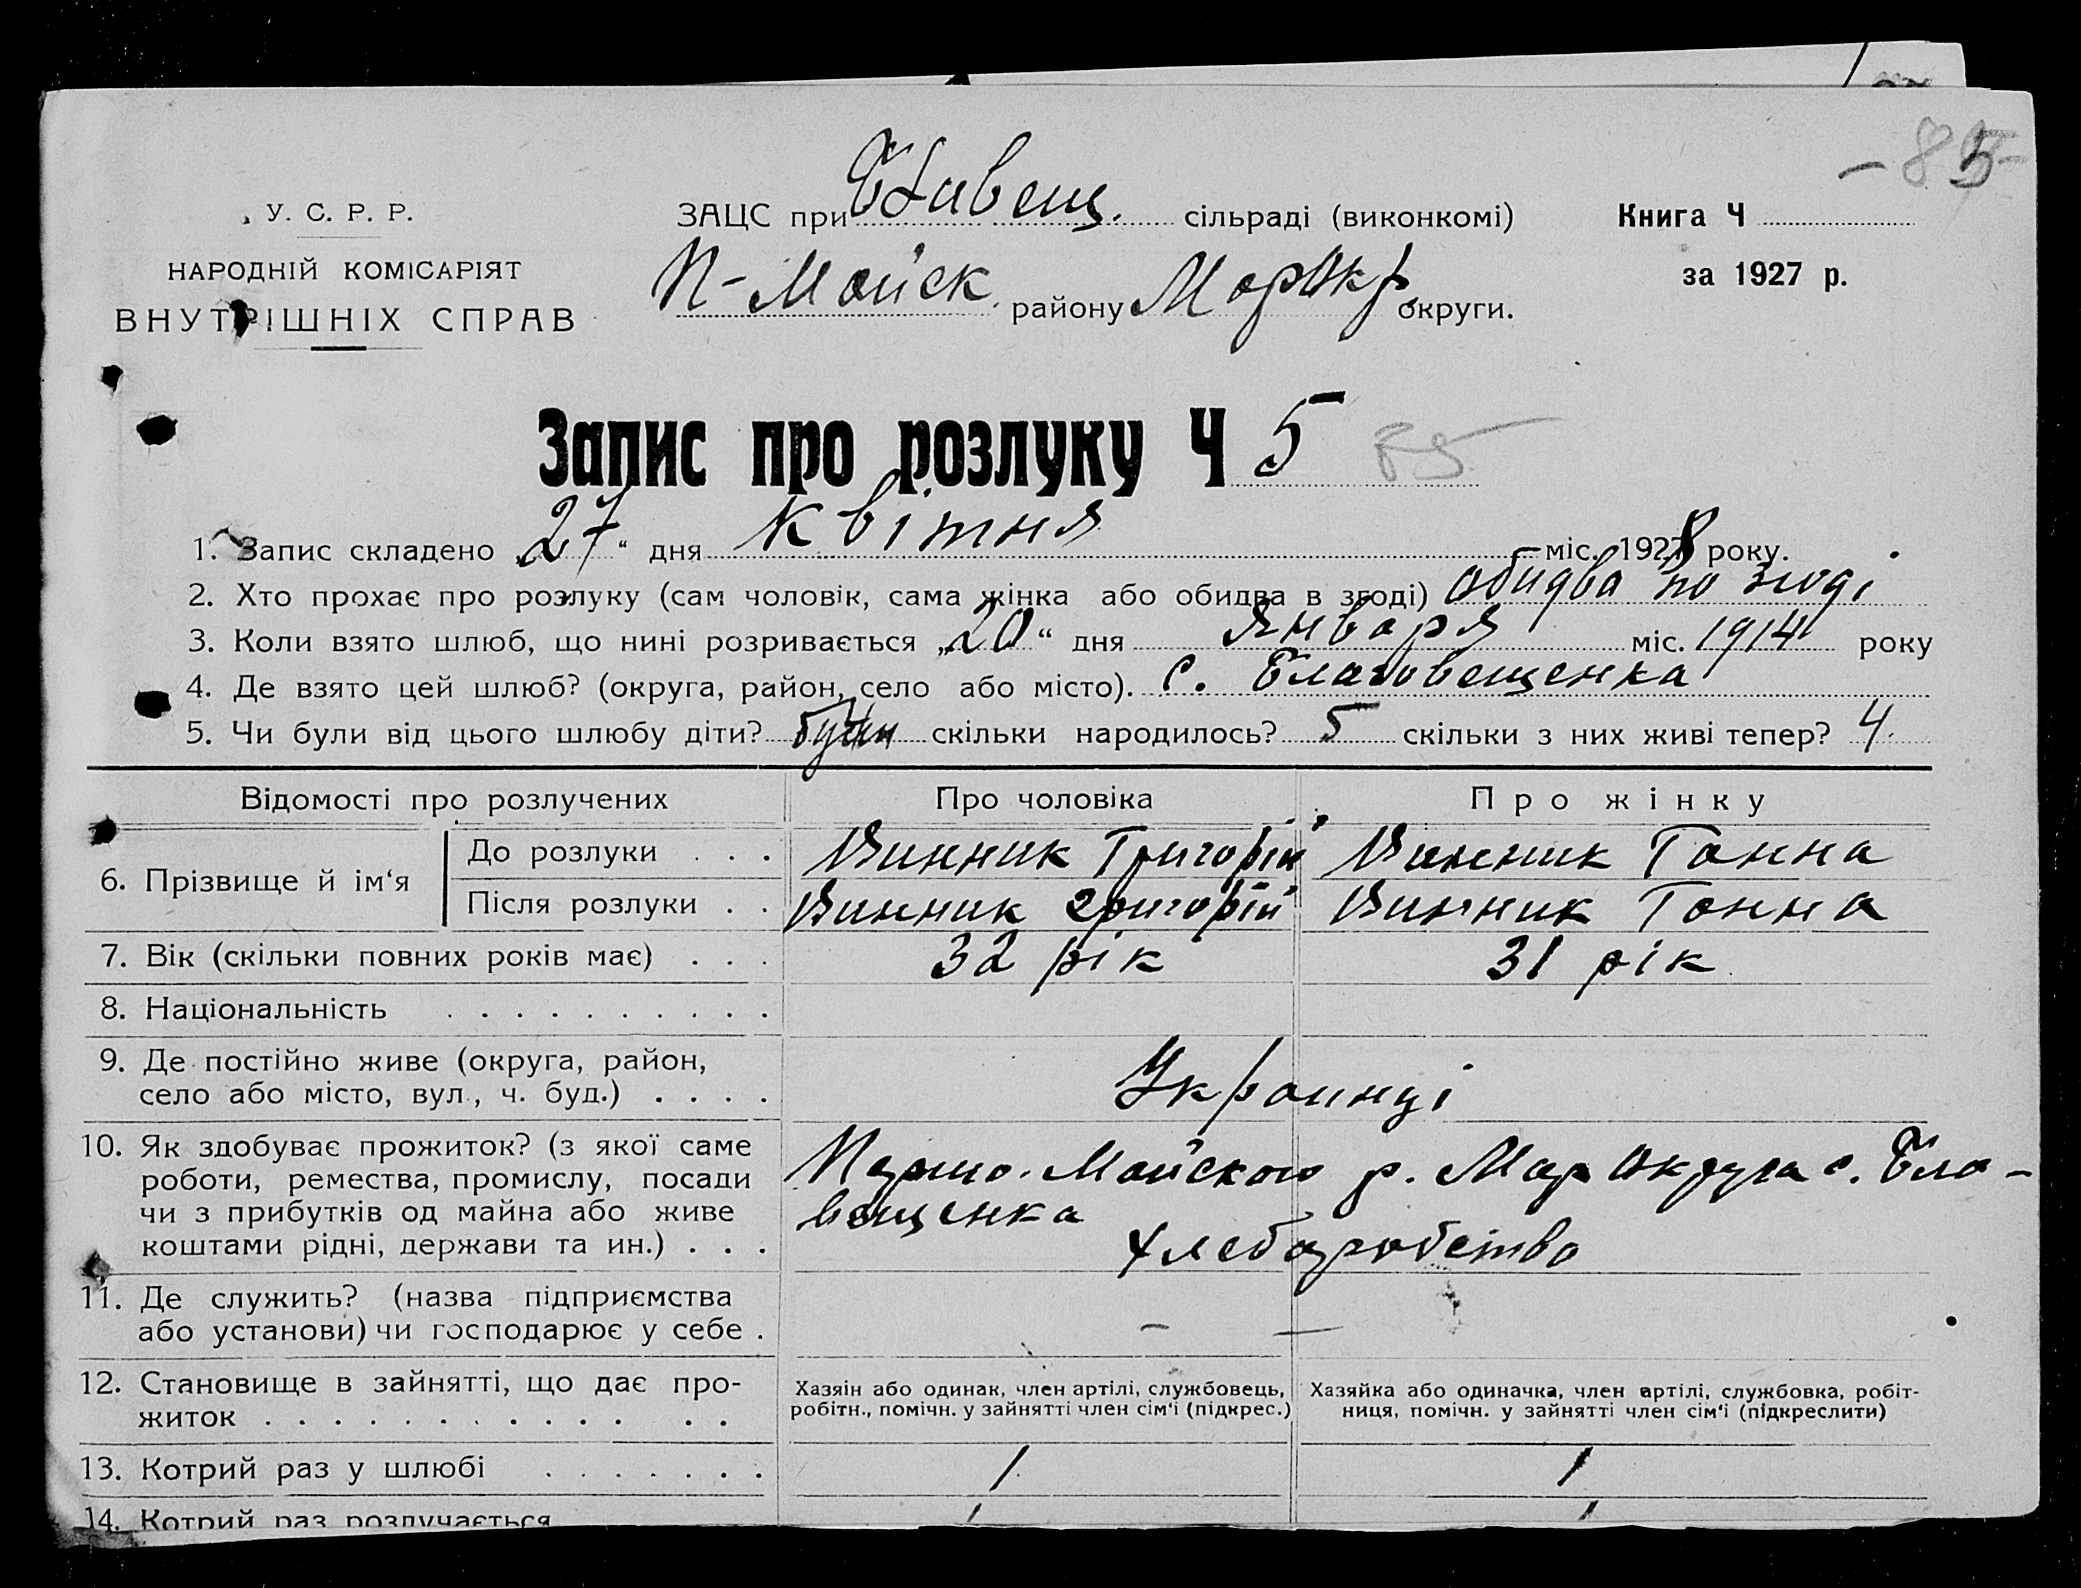 - 85 -
У. С. Р. Р.
НАРОДНІЙ КОМІСАРІЯТ
ВНУТРІШНІХ СПРАВ
ЗАЦС при сільраді (виконкомі)
П-Майск району МарОкр округи.
Книга Ч
за 1927 р.
Запис про розлуку Ч 5 85
1. Запис складено „27“ дня Квітня міс. 1928 року.
2. Хто прохає про розлуку (сам чоловік, сама жінка або обидва в згоді) обидва по згоді
3. Коли взято шлюб, що нині розривається „20“ дня Января міс. 1914 року
4. Де взято цей шлюб? (округа, район, село або місто). с. Благовещенка
5. Чи були від цього шлюбу діти? були скільки народилось? 5 скільки з них живі тепер? 4.
Відомості про розлучених Про чоловіка Про жінку
6. Прізвище й ім‘я До розлуки . . . Винник Григорій Винник Ганна
Після розлуки . . Винник Григорій Винник Ганна
7. Вік (скільки повних років має) . . . 32 рік 31 рік
8. Національність . . . . . . . . . .
9. Де постійно живе (округа, район,
село або місто, вул., ч. буд.) . . . . Украинці
10. Як здобуває прожиток? (з якої саме
роботи, ремества, промислу, посади
чи з прибутків од майна або живе
коштами рідні, держави та ин.) . . .
Першо-Майского р. Мар Округа с. Бла-
вещенка
хлебаробство
11. Де служить? (назва підприємства
або установи) чи господарює у себе . — —
12. Становище в зайнятті, що дає про-
житок . . . . . . . . . . . . .
Хазяін або одинак, член артілі, службовець,
робітн., помічн. у зайнятті член сім‘ї (підкрес.)
Хазяйка або одиначка, член артілі, службовка, робіт-
ниця, помічн. у зайнятті член сім‘ї (підкреслити)
13. Котрий раз у шлюбі . . . . . . . 1 1
14. Котрий раз розлучається 1 1